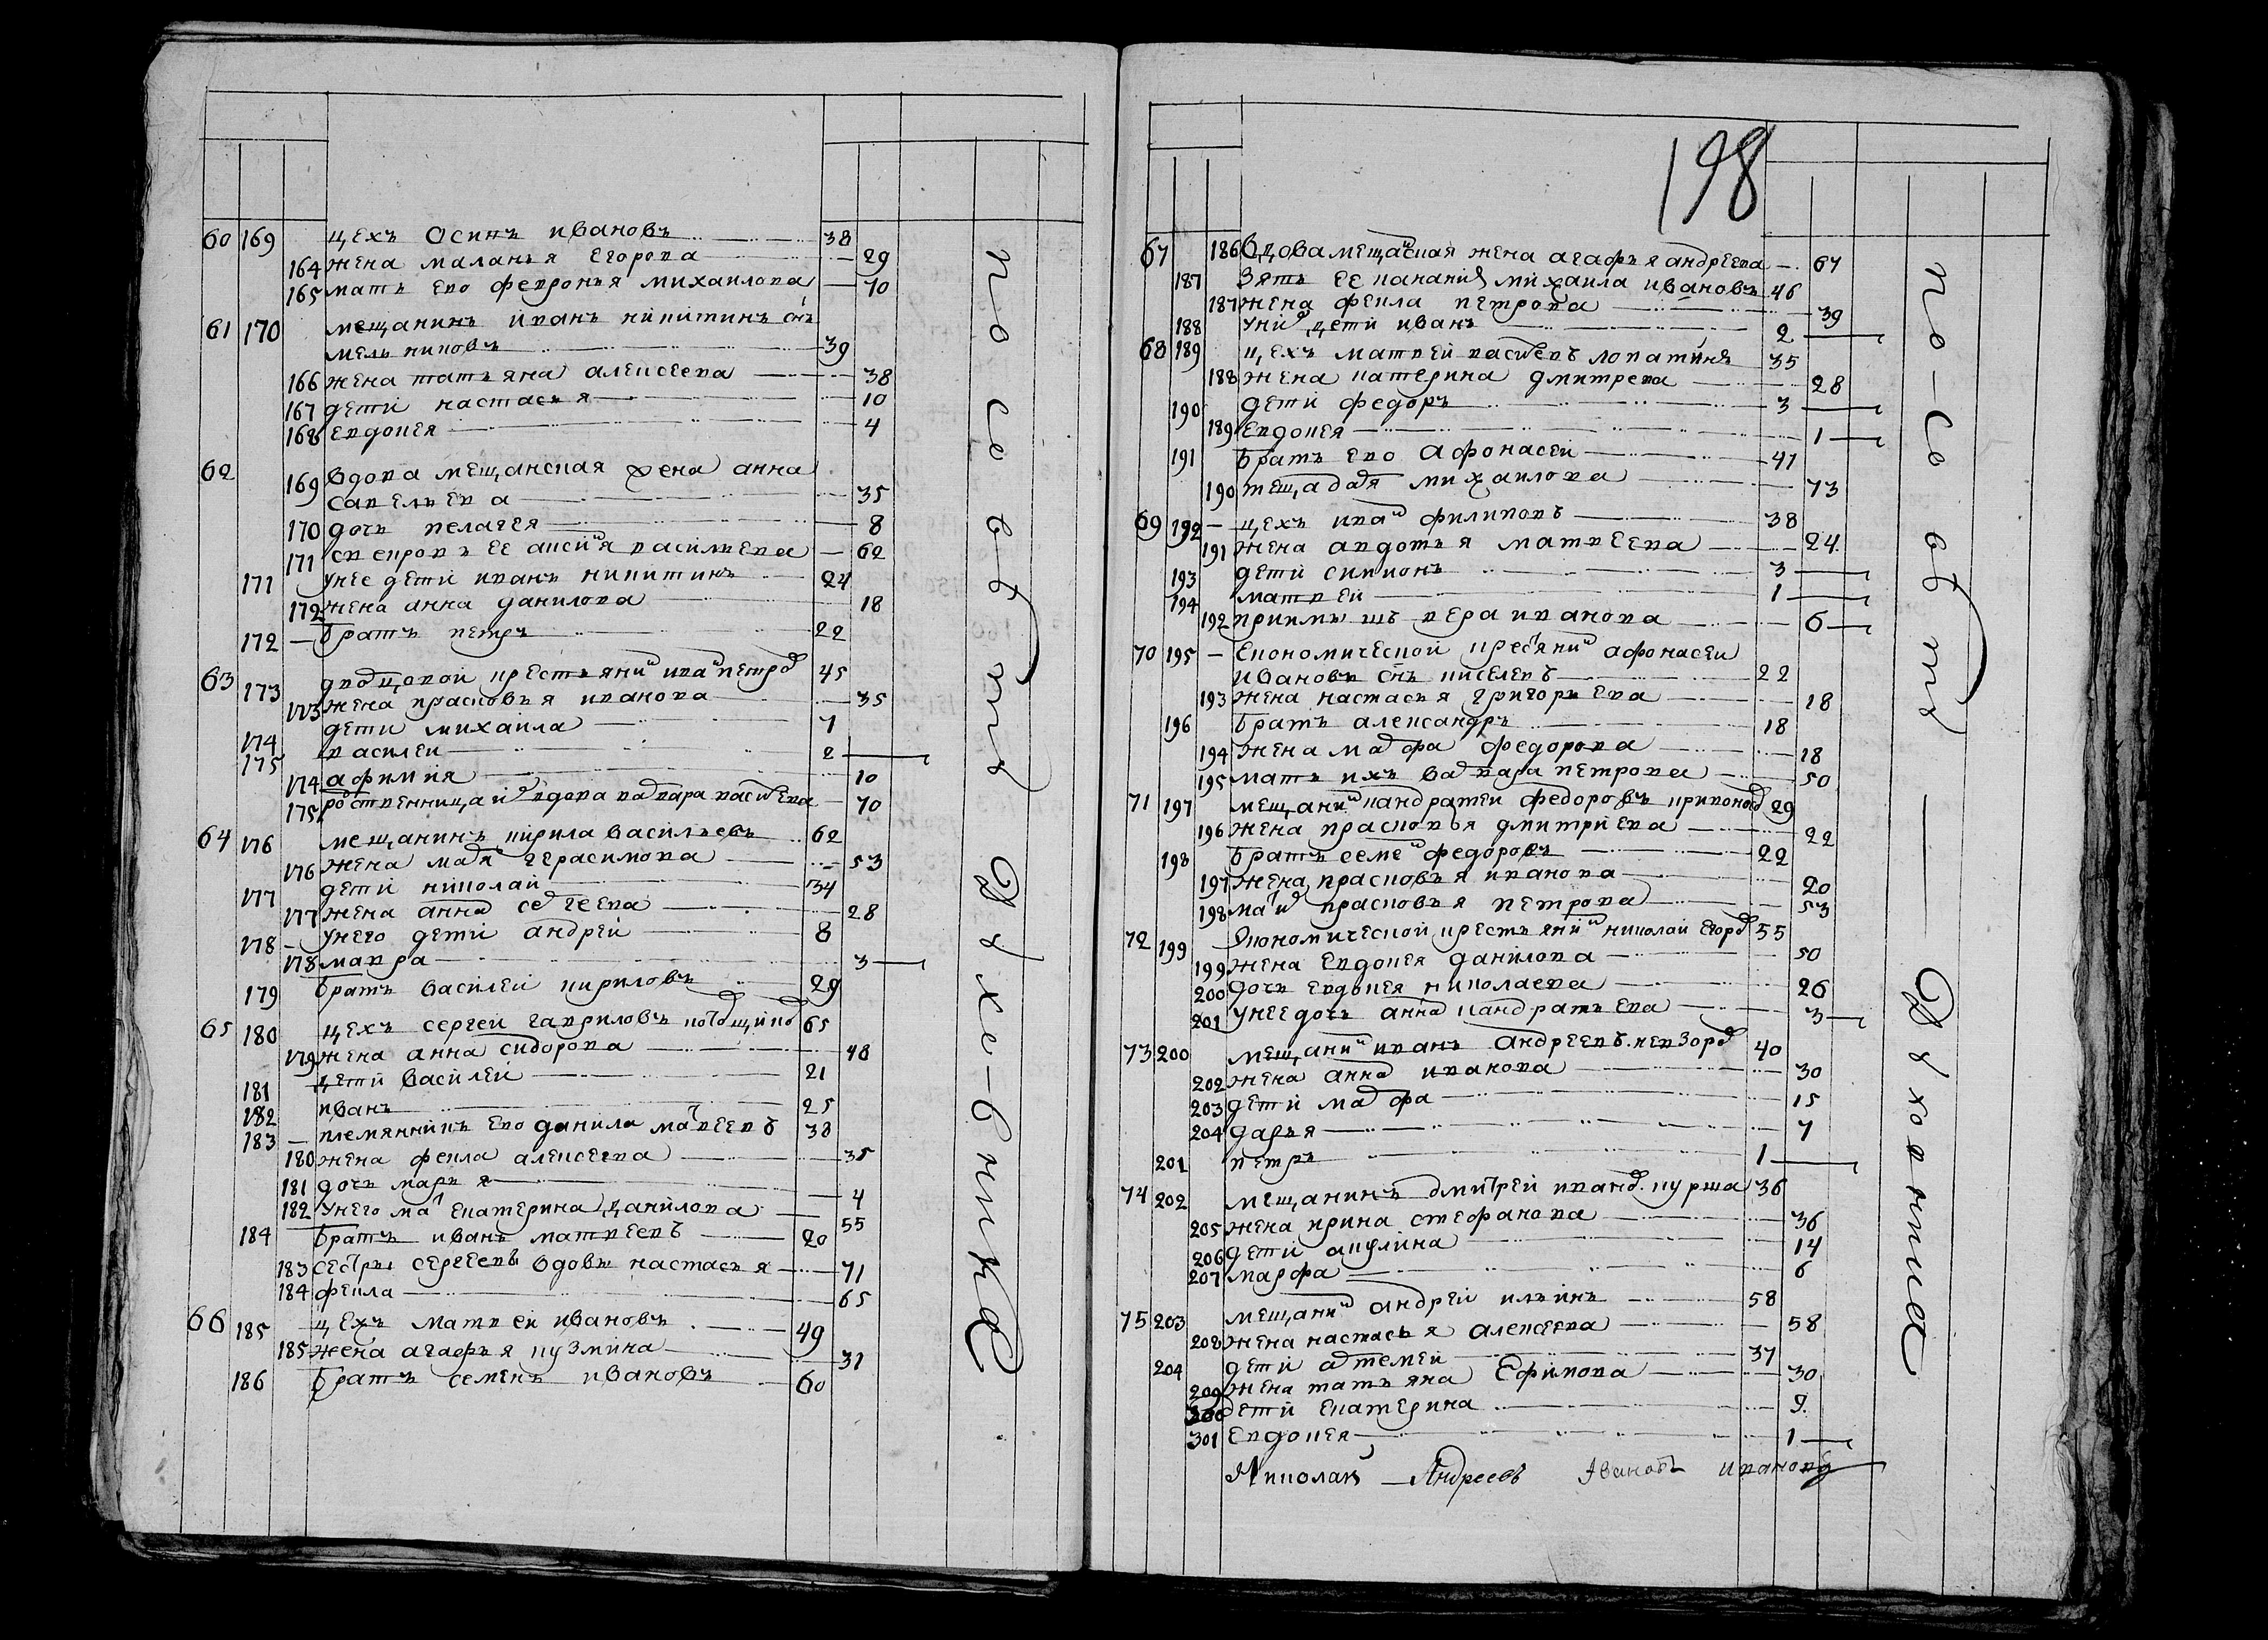 60 169 цехъ Осипъ ивановъ 38
164 жена маланья Егорова 29
165 мать ево февронья михаилова 70
61 170 мещанинъ иванъ никитинъ снъ
мельниковъ 39
166 жена татьяна алексеева 38
167 дети настасья 10
168 Евдокея 4
62 169 вдова мещанская жена анна
савельева 35
170 дочь пелагея 8
171 свекровь ее аксинья васильева 62
171 унее дети иванъ никитинъ 24
172 жена анна данилова 18
172 братъ петръ 22
63 173 дворцовой крестьянинъ иванъ петровъ 45
173 жена прасковья иванова 35
174 дети михаила 7
175 василеи 2
174 афимия 10
175 вдова варвара васильева 70
64 176 мещанинъ кирила васильевъ 62
176 жена марья герасимова 53
177 дети николаи 34
177 жена анна сергеева 28
178 унего дети андреи 8
178 мавра 3
179 братъ василеи кириловъ 29
65 180 цехъ сергеи гавриловъ 65
179 жена анна сидорова 48
181 дети василеи 21
182 иванъ 25
183 племянникъ ево данила матвеевъ 38
180 жена фекла алексеева 35
181 дочь марья 4
182 унего мать екатерина данилова 55
184 братъ иванъ матвеевъ 20
183 сестры сергеевы вдовы настасья 71
184 фекла 65
66 185 цехъ матвеи ивановъ 49
185 жена агафья кузмина 31
186 братъ семенъ ивановъ 60
по сеовтъ Духе-вника
198
67 186 вдова мещанская жена агафья андреева 67
187 зять ее михаила ивановъ 46
187 жена фекла петрова 39
188 уних дети иванъ 2
68 189 цехъ матвеи васильевъ лопатинъ 35
188 жена катерина дмитрева 28
190 дети федоръ 3
189 Евдокея 1
191 братъ ево афонасеи 41
190 теща дарья михаилова 73
69 192 цехъ иванъ филиповъ 38
191 жена авдотья матвеева 24
193 дети симионъ 3
194 матвеи 1
192 приимышъ вера иванова 6
70 195 Економическои крестьянинъ афонасеи
ивановъ снъ киселевъ 22
193 жена настасья григорьева 18
196 братъ александръ 18
194 жена марфа федорова 18
195 мать ихъ варвара петрова 50
71 197 мещанинъ кандратеи федоровъ 29
196 жена прасковья дмитриева 22
198 братъ семенъ федоровъ 22
197 жена прасковья иванова 20
198 мать прасковья петрова 53
72 199 Экономическои крестьянинъ николаи Егоровъ 55
199 жена Евдокея данилова 50
200 дочь евдокея николаева 26
201 унее дочь анна кандратьева 3
73 200 мещанинъ иванъ андреевъ невзоровъ 40
202 жена анна иванова 30
203 дети марфа 15
204 дарья 7
201 петръ 1
74 202 мещанинъ дмитреи ивановъ курша 36
205 жена ирина стефанова 36
206 дети акулина 14
207 марфа 6
75 203 мещанинъ андреи ильинъ 58
208 жена настасья алексеева 58
204 дети артемеи 37
209 жена татьяна Ефимова 30
300 дети Екатерина 9
301 Евдокея 1
Николаи Андреевъ Ивановъ ивановъ
по-сеовтъ — Духовника